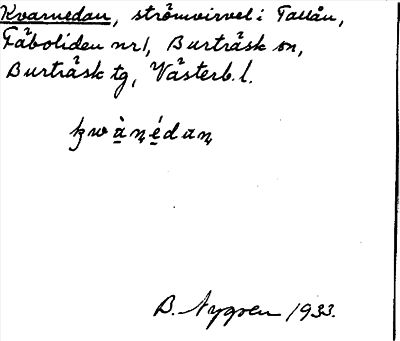 Kvarnedan, strömvirvel i Tallån,
Fäboliden nr 1, Burträsk sn,
Burträsk tg, Västerb. l.
kwàṇédaṇ
B. Nygren 1933.